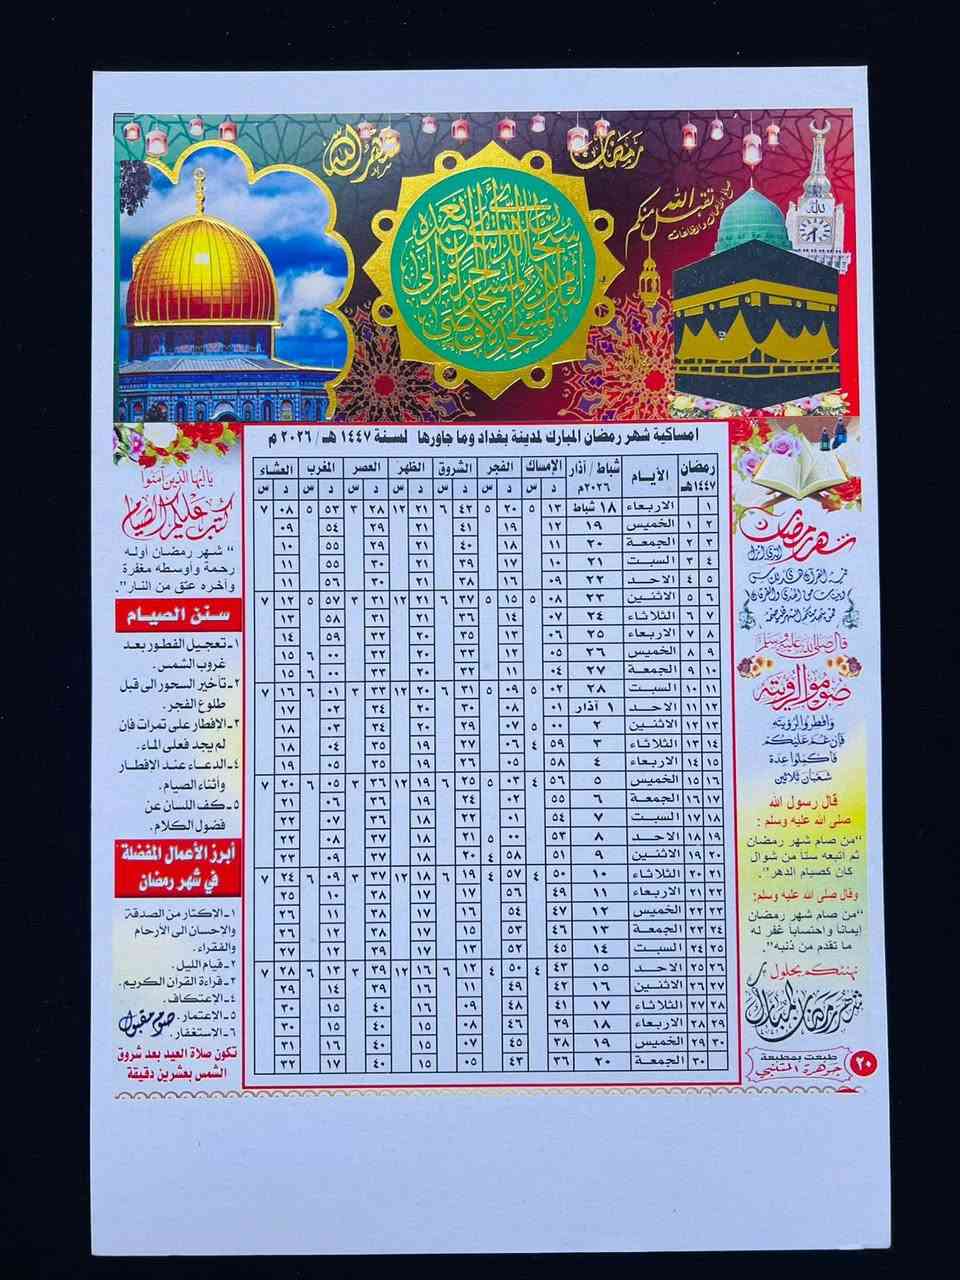 شهر الله
رمضان
تقبل الله منكم
امساكية شهر رمضان المبارك لمدينة بغداد وما جاورها لسنة ١٤٤٧ هـ / ٢٠٢٦ م
رمضان ١٤٤٧هـ الأيـام شباط / آذار ٢٠٢٦م الإمساك الفجر الشروق الظهر العصر المغرب العشاء
د س د س د س د س د س د س د س
١ الاربعاء ١٨ شباط ١٣ ٥ ٢٠ ٥ ٤٢ ٦ ٢١ ١٢ ٢٨ ٣ ٥٣ ٥ ٠٨ ٧
٢ ١ الخميس ١٩ ١٢ ١٩ ٤١ ٢١ ٢٩ ٥٤ ٠٩
٣ ٢ الجمعة ٢٠ ١١ ١٨ ٤٠ ٢١ ٢٩ ٥٥ ١٠
٤ ٣ السبت ٢١ ١٠ ١٧ ٣٩ ٢١ ٣٠ ٥٥ ١١
٥ ٤ الاحد ٢٢ ٠٩ ١٦ ٣٨ ٢١ ٣٠ ٥٦ ١١
٦ ٥ الاثنين ٢٣ ٠٨ ٥ ١٥ ٥ ٣٧ ٦ ٢١ ١٢ ٣١ ٣ ٥٧ ٥ ١٢ ٧
٧ ٦ الثلاثاء ٢٤ ٠٧ ١٤ ٣٦ ٢١ ٣١ ٥٨ ١٣
٨ ٧ الاربعاء ٢٥ ٠٦ ١٣ ٣٥ ٢٠ ٣٢ ٥٩ ١٤
٩ ٨ الخميس ٢٦ ٠٥ ١٢ ٣٣ ٢٠ ٣٢ ٠٠ ٦ ١٥
١٠ ٩ الجمعة ٢٧ ٠٤ ١١ ٣٢ ٢٠ ٣٣ ٠٠ ٦ ١٥
١١ ١٠ السبت ٢٨ ٠٢ ٥ ٠٩ ٥ ٣١ ٦ ٢٠ ١٢ ٣٣ ٣ ٠١ ٦ ١٦ ٧
١٢ ١١ الاحد ١ آذار ٠١ ٠٨ ٣٠ ٢٠ ٣٤ ٠٢ ١٧
١٣ ١٢ الاثنين ٢ ٠٠ ٥ ٠٧ ٢٩ ٢٠ ٣٤ ٠٣ ١٨
١٤ ١٣ الثلاثاء ٣ ٥٩ ٤ ٠٦ ٢٧ ١٩ ٣٥ ٠٤ ١٨
١٥ ١٤ الاربعاء ٤ ٥٨ ٠٥ ٢٦ ١٩ ٣٥ ٠٥ ١٩
١٦ ١٥ الخميس ٥ ٥٦ ٤ ٠٣ ٥ ٢٥ ٦ ١٩ ١٢ ٣٦ ٣ ٠٥ ٦ ٢٠ ٧
١٧ ١٦ الجمعة ٦ ٥٥ ٠٢ ٢٤ ١٩ ٣٦ ٠٦ ٢١
١٨ ١٧ السبت ٧ ٥٤ ٠١ ٢٢ ١٨ ٣٦ ٠٧ ٢٢
١٩ ١٨ الاحد ٨ ٥٣ ٠٠ ٥ ٢١ ١٨ ٣٧ ٠٨ ٢٢
٢٠ ١٩ الاثنين ٩ ٥١ ٥٨ ٤ ٢٠ ١٨ ٣٧ ٠٩ ٢٣
٢١ ٢٠ الثلاثاء ١٠ ٥٠ ٤ ٥٧ ٤ ١٩ ٦ ١٨ ١٢ ٣٧ ٣ ٠٩ ٦ ٢٤ ٧
٢٢ ٢١ الاربعاء ١١ ٤٩ ٥٦ ١٧ ١٧ ٣٨ ١٠ ٢٥
٢٣ ٢٢ الخميس ١٢ ٤٧ ٥٤ ١٦ ١٧ ٣٨ ١١ ٢٦
٢٤ ٢٣ الجمعة ١٣ ٤٦ ٥٣ ١٥ ١٧ ٣٨ ١٢ ٢٦
٢٥ ٢٤ السبت ١٤ ٤٥ ٥٢ ١٣ ١٧ ٣٩ ١٢ ٢٧
٢٦ ٢٥ الاحد ١٥ ٤٣ ٤ ٥٠ ٤ ١٢ ٦ ١٦ ١٢ ٣٩ ٣ ١٣ ٦ ٢٨ ٧
٢٧ ٢٦ الاثنين ١٦ ٤٢ ٤٩ ١١ ١٦ ٣٩ ١٤ ٢٩
٢٨ ٢٧ الثلاثاء ١٧ ٤١ ٤٨ ٠٩ ١٦ ٤٠ ١٥ ٣٠
٢٩ ٢٨ الاربعاء ١٨ ٣٩ ٤٦ ٠٨ ١٥ ٤٠ ١٥ ٣٠
٣٠ ٢٩ الخميس ١٩ ٣٨ ٤٥ ٠٧ ١٥ ٤٠ ١٦ ٣١
٣٠ الجمعة ٢٠ ٣٦ ٤٣ ٠٥ ١٥ ٤٠ ١٧ ٣٢
شهر رمضان
الذي انزل
فيه القرآن هدى للناس
وبينات من الهدى والفرقان
فمن شهد منكم الشهر فليصمه
قال صلى الله عليه وسلم
صوموا لرؤيته
وافطروا لرؤيته
فإن غم عليكم
فأكملوا عدة
شعبان ثلاثين
قال رسول الله
صلى الله عليه وسلم :
"من صام شهر رمضان
ثم أتبعه ستاً من شوال
كان كصيام الدهر".
وقال صلى الله عليه وسلم:
"من صام شهر رمضان
إيماناً واحتساباً غفر له
ما تقدم من ذنبه".
نهنئكم بحلول
شهر رمضان المبارك
طبعت بمطبعة
جوهرة المتنبي
٢٠
يا أيها الذين آمنوا
كتب عليكم الصيام
" شهر رمضان أوله
رحمة وأوسطه مغفرة
وآخره عتق من النار".
سنن الصيام
١ـ تعجيل الفطور بعد
غروب الشمس.
٢ـ تأخير السحور الى قبل
طلوع الفجر.
٣ـ الإفطار على تمرات فان
لم يجد فعلى الماء.
٤ـ الدعاء عند الإفطار
وأثناء الصيام.
٥ـ كف اللسان عن
فضول الكلام.
أبرز الأعمال المفضلة
في شهر رمضان
١ـ الاكثار من الصدقة
والإحسان الى الأرحام
والفقراء.
٢ـ قيام الليل.
٣ـ قراءة القران الكريم.
٤ـ الاعتكاف.
٥ـ الاعتمار.
٦ـ الاستغفار.
صوم مقبول
تكون صلاة العيد بعد شروق
الشمس بعشرين دقيقة